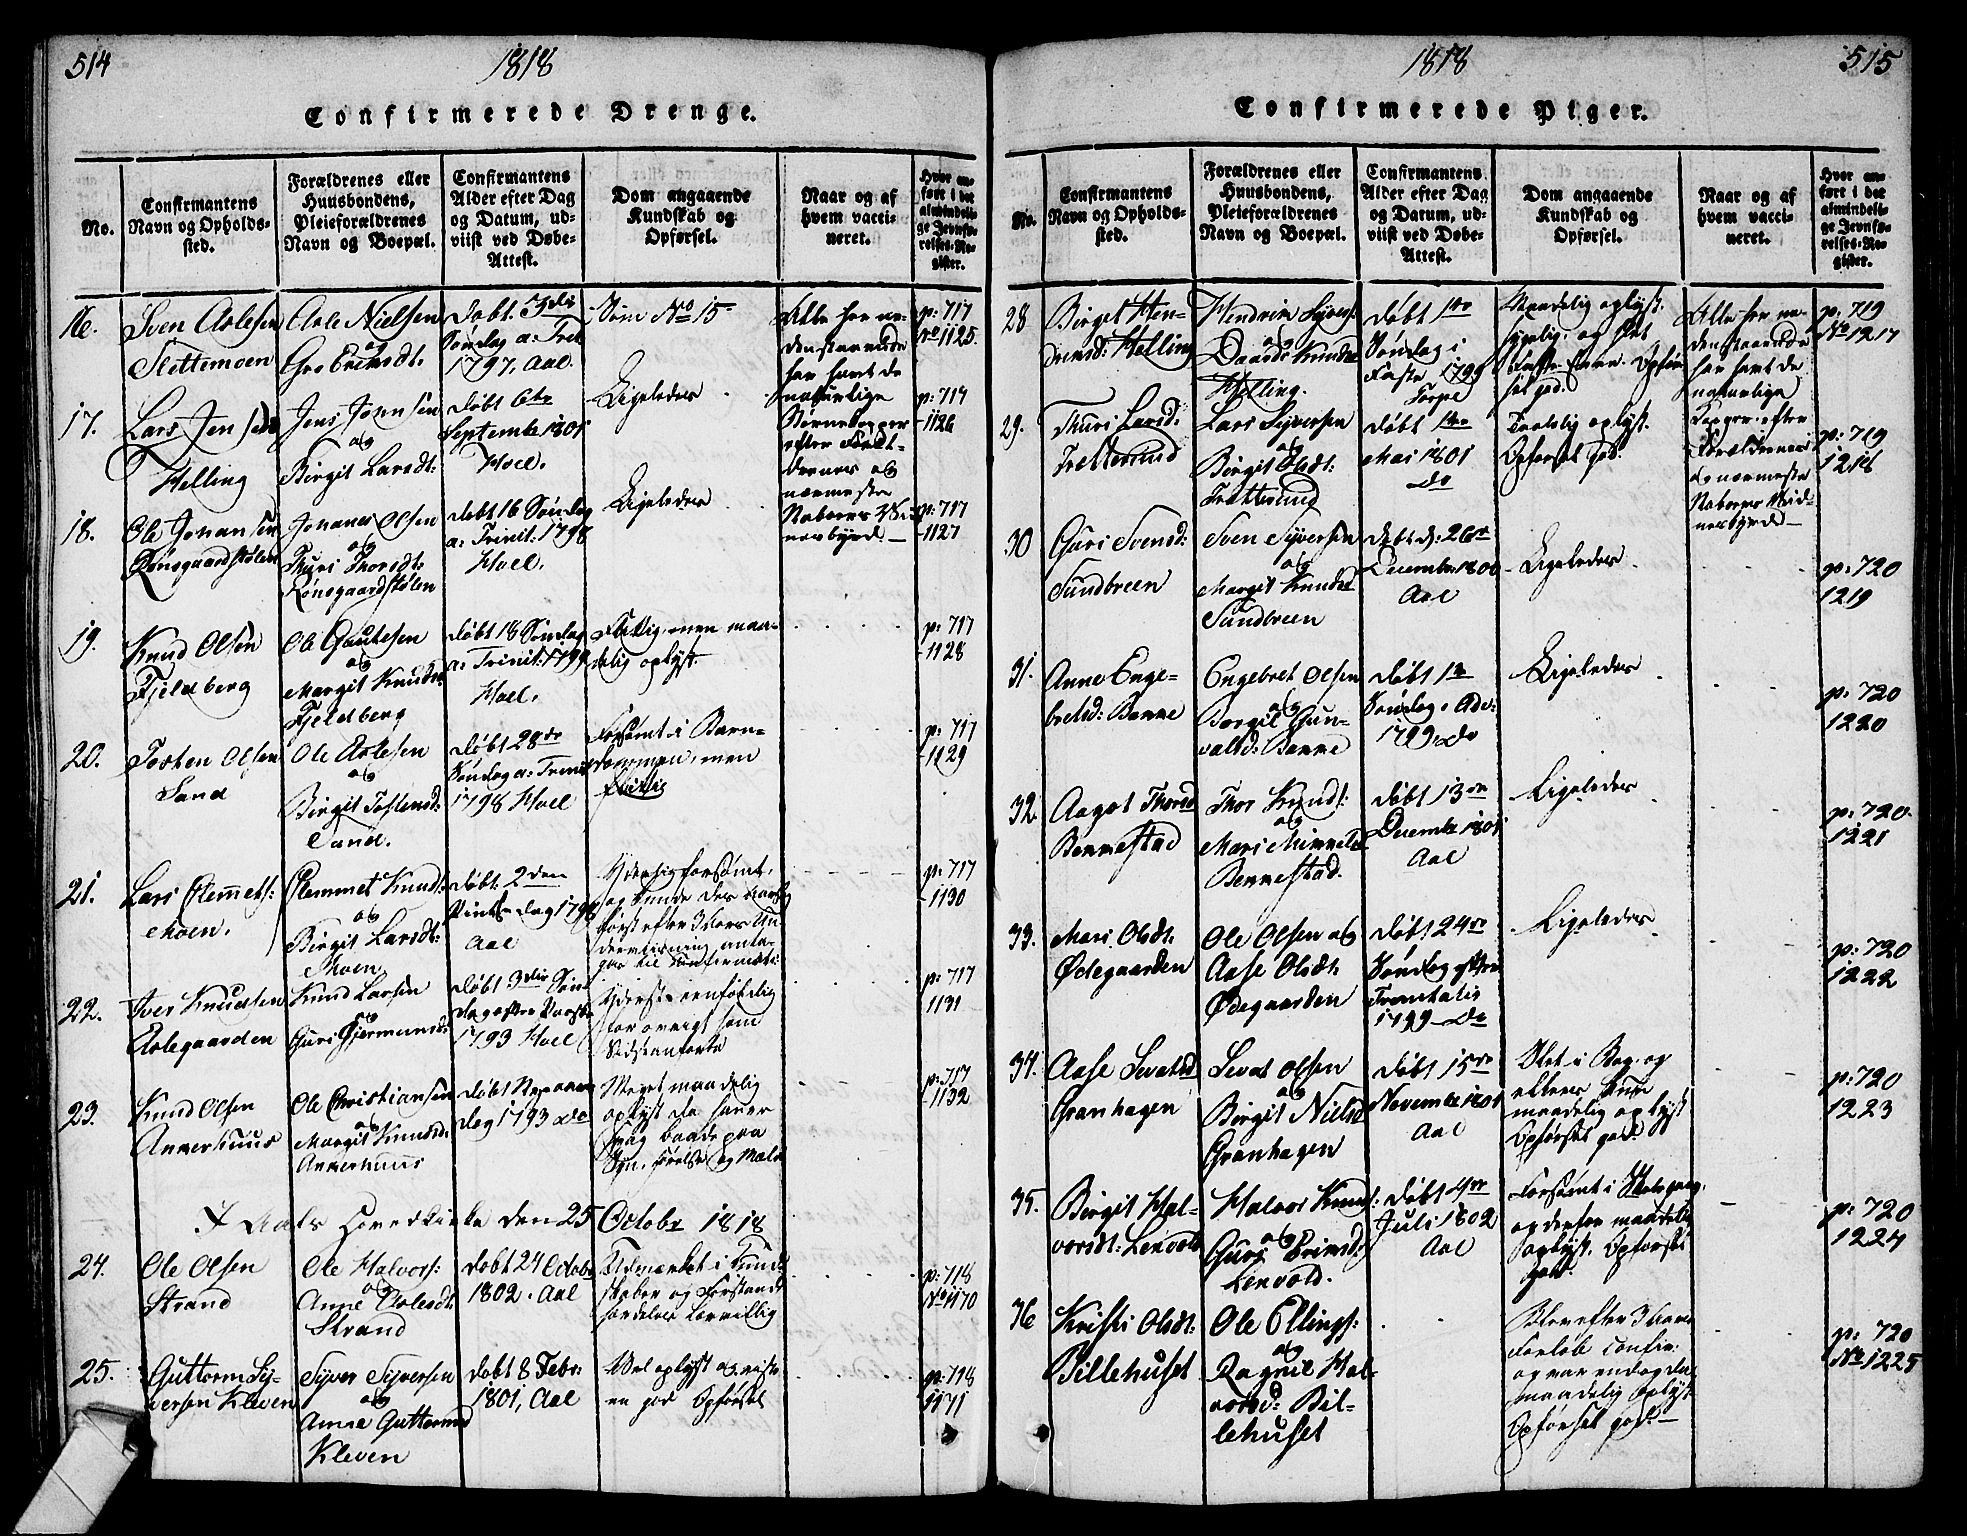 514
1818
Confirmerede Drenge.
No.
Confirmantens
Navn og Opholds-
sted.
Forældrenes eller
Huusbondens,
Pleieforældrenes
Navn og Boepæl.
Confirmantens
Alder efter Dag
og Datum, ud-
viist ved Døbe-
Attest.
Dom angaaende
Kundskab og
Opførsel.
Naar og af
hvem vacci-
neret.
Hvor an-
ført i det
almindeli-
ge Jevnfø-
relses-Re-
gister.
16.
Sven Aslesen
Slettemoen
Asle Nielsen
og
Gro Eriksdt.
Døbt 3die
Søndag a: Tret
1797, Aal.
Som No 15
Alle her ne-
denstaaende
har havt de
naturlige
Børnekopper
efter Foræl-
drenes og
nærmeste
Naboers Vid-
nesbyrd
p: 717
No 1125
17.
Lars Jensen
Helling
Jens Jonsen
og
Birgit Larsdt:
Døbt 6te
September 1801
Hoel.
Ligeledes
p: 717
1126
18.
Ole Johansen
Rønsgaardstølen
Johanes Olsen
og
Thuri Thorsdt.
Rønsgaardstølen
Døbt 16 Søndag
a: Trinit: 1798
Hoel.
Ligeledes
p: 717
1127
19.
Knud Olsen
Fjeldberg
Ole Gautesen
og
Margit Knuds
Fjeldberg
Døbt 18 Søndag
a: Trinit: 1799
Hoel.
Flittig men maa-
delig oplyst.
p: 717
1128
20.
Tosten Olsen
Sand
Ole Aslesen
og
Birgit Tostensd:
Sand.
Døbt 28de
Søndag a: Trinit
1798 Hoel
Forsømt i Barn-
dommen, men
flittig
p: 717
1129
21.
Lars Clemmets:
Moen.
Clemmet Knuds:
og
Birgit Larsdt:
Moen
Døbt 2den
Pintsedag 1798
Aal
Yderlig forsømt,
og kunde
først efter 3 Aars Un-
dervisning anta-
ges til Confirmati:
p: 717
1130
22.
Iver Knudsen
Aslegaarden
Knud Larsen
og
Guri Gjermunds
Døbt 3die Søn-
dag efter Paaske
1793 Hoel
Yderst eenfoldig
for øvrigt som
Sidstanførte
p: 717
1131
23.
Knud Olsen
Ankerhuus
Ole Christiansen
og
Margit Knudsd:
Ankerhuus
Døbt Nyaars
Dag 1793 do
Meget maadelig
oplyst da hans
svag baade paa
Syn, Hørelse og Mæle
p: 717
1132
I Aals Hovedkirke den 25 October 1818
24.
Ole Olsen
Strand
Ole Halvors:
og
Anne Aslesdt:
Strand
Døbt 24 Octobr
1802. Aal
Udmærket i Kund-
skaber og Forstand
saavelsom
p: 718
No 1170
25.
Guttorm Sy-
versen Kleven
Syver Syversen
og
Anne Guttormsd
Kleven
Døbt 8 Febr.
1801, Aal
Vel oplyst og viste
en god Opførsel
p: 718
1171
1818
515
Confirmerede Piger.
No.
Confirmantens
Navn og Opholds-
sted.
Forældrenes eller
Huusbondens,
Pleieforældrenes
Navn og Boepæl.
Confirmantens
Alder efter Dag
og Datum, ud-
viist ved Døbe-
Attest.
Dom angaaende
Kundskab og
Opførsel.
Naar og af
hvem vacci-
neret.
Hvor an-
ført i det
almindeli-
ge Jevnfø-
relses-Re-
gister.
28
Birget Hen-
driksd: Helling
Hendrik Syvers:
og
Daardi Knudsd
Helling.
Døbt 1ste
Søndag i
Faste 1799
Torpe
Maadelig oplyst.
sygelig og slet
Opfør-
sel god.
Alle her ne-
denstaaende
har havt de
naturlige
Kopper efter
Forældrenes
og nærmeste
Naboers Vid-
nesbyrd
p: 719
No 1217
29.
Thuri Larsd:
Trettesund
Lars Syversen
og
Birgit Olsdt:
Trettesund
Døbt 1ste
Mai 1801
do
Taalelig oplyst.
Opførsel god.
p: 719
1218
30
Guri Svensd:
Sundbreen
Sven Syversen
og
Margit Knudsd
Sundbreen
Døbt d: 26de
December 1800
Aal
Ligeledes
p: 720
1219
31.
Anne Enge-
bretsd: Benne
Engebret Olsen
og
Børgil Gun-
valsd: Benne
Døbt 1ste
Søndag i Adv:
1799. do
Ligeledes
p: 720
1220
32.
Aagot Thorsd
Bennestad
Thor Knuds:
og
Mari Kimmelsd
Bennestad.
Døbt 13de
December 1801
Aal
Ligeledes
p: 720.
1221
33.
Mari Olsdt:
Ødegaarden
Ole Olsen og
Aase Olsdt:
Ødegaarden
Døbt 24de
Søndag efter
Trinitatis
1799 do
Ligeledes
p: 720
1222
34.
Aase Sevatsd
Granhagen
Sevat Olsen
og
Birgit Nielsd
Granhagen
Døbt 15de
November 1801
Aal
Slet i Bog, og
ellers kun
maadelig oplyst
Opførsel god.
p: 720
1223
35.
Birgit Hal-
vorsdt: Lenvold
Halvor Knuds:
og
Guri Eriksd:
Lenvold.
Døbt 4de
Juli 1802
Aal
Forsømt i Skolegang
og derfor maadelig
oplyst. Opførsel
god.
p: 720
1224
36
Kristi Olsdt:
Billehuset
Ole Ellings:
og
Ragnil Hal-
vorsd: Bil-
lehuset
Blev efter 3 Aars
Forløb confir:
og var endog da
maadelig oplyst
Opførsel god.
p: 720
No 1225